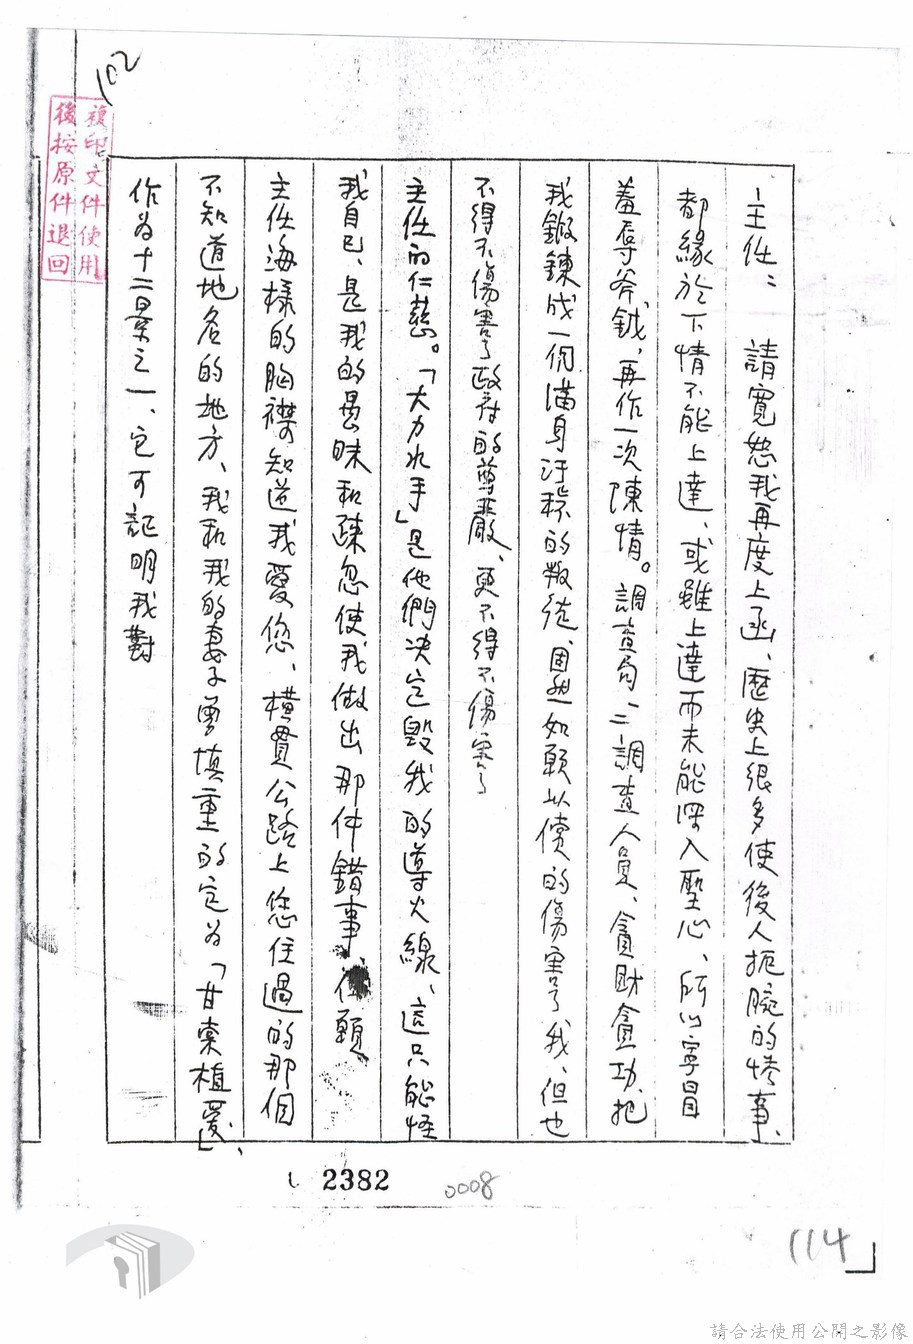 102
複印文件使用
後按原件退回
主任：　請寬恕我再度上函、歷史上很多使後人扼腕的情事、
都緣於下情不能上達、或雖上達而未能深入聖心、所以寧冒
羞辱斧鉞，再作一次陳情。調查局、二調查人員、貪財貪功、把
我鍛鍊成一個滿身汙穢的叛徒、固然如願以償的傷害了我、但也
不得不傷害了政府的尊嚴、更不得不傷害了
主任的仁慈。「大力水手」是他們決定毀我的導火線、這只能怪
我自己、是我的愚昧和疎忽使我做出那件錯事、但願
主任海樣的胸襟知道我愛您、橫貫公路上您住過的那個
不知道地名的地方、我和我的妻子曾慎重的定為「甘棠植愛」、
作為十二景之一、它可証明我對
2382
0008
114
請合法使用公開之影像